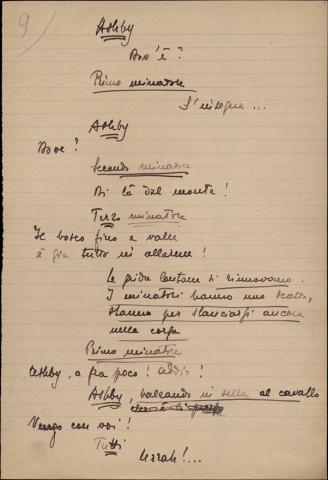 9
Ashby
Dov'è?
Primo minatore
S'insegue...
Ashby
Dove?
Secondo minatore
Di là dal monte!
Terzo minatore
Il bosco fino a valle
è già tutto in allarme!
Le grida lontane si rinnovano.
I minatori hanno uno scatto,
stanno per slanciarsi ancora
nella corsa
Primo minatore
Ashby, a fra poco! Addio!
Ashby, balzando in sella al cavallo
Vengo con voi!
Tutti
Urrah!...